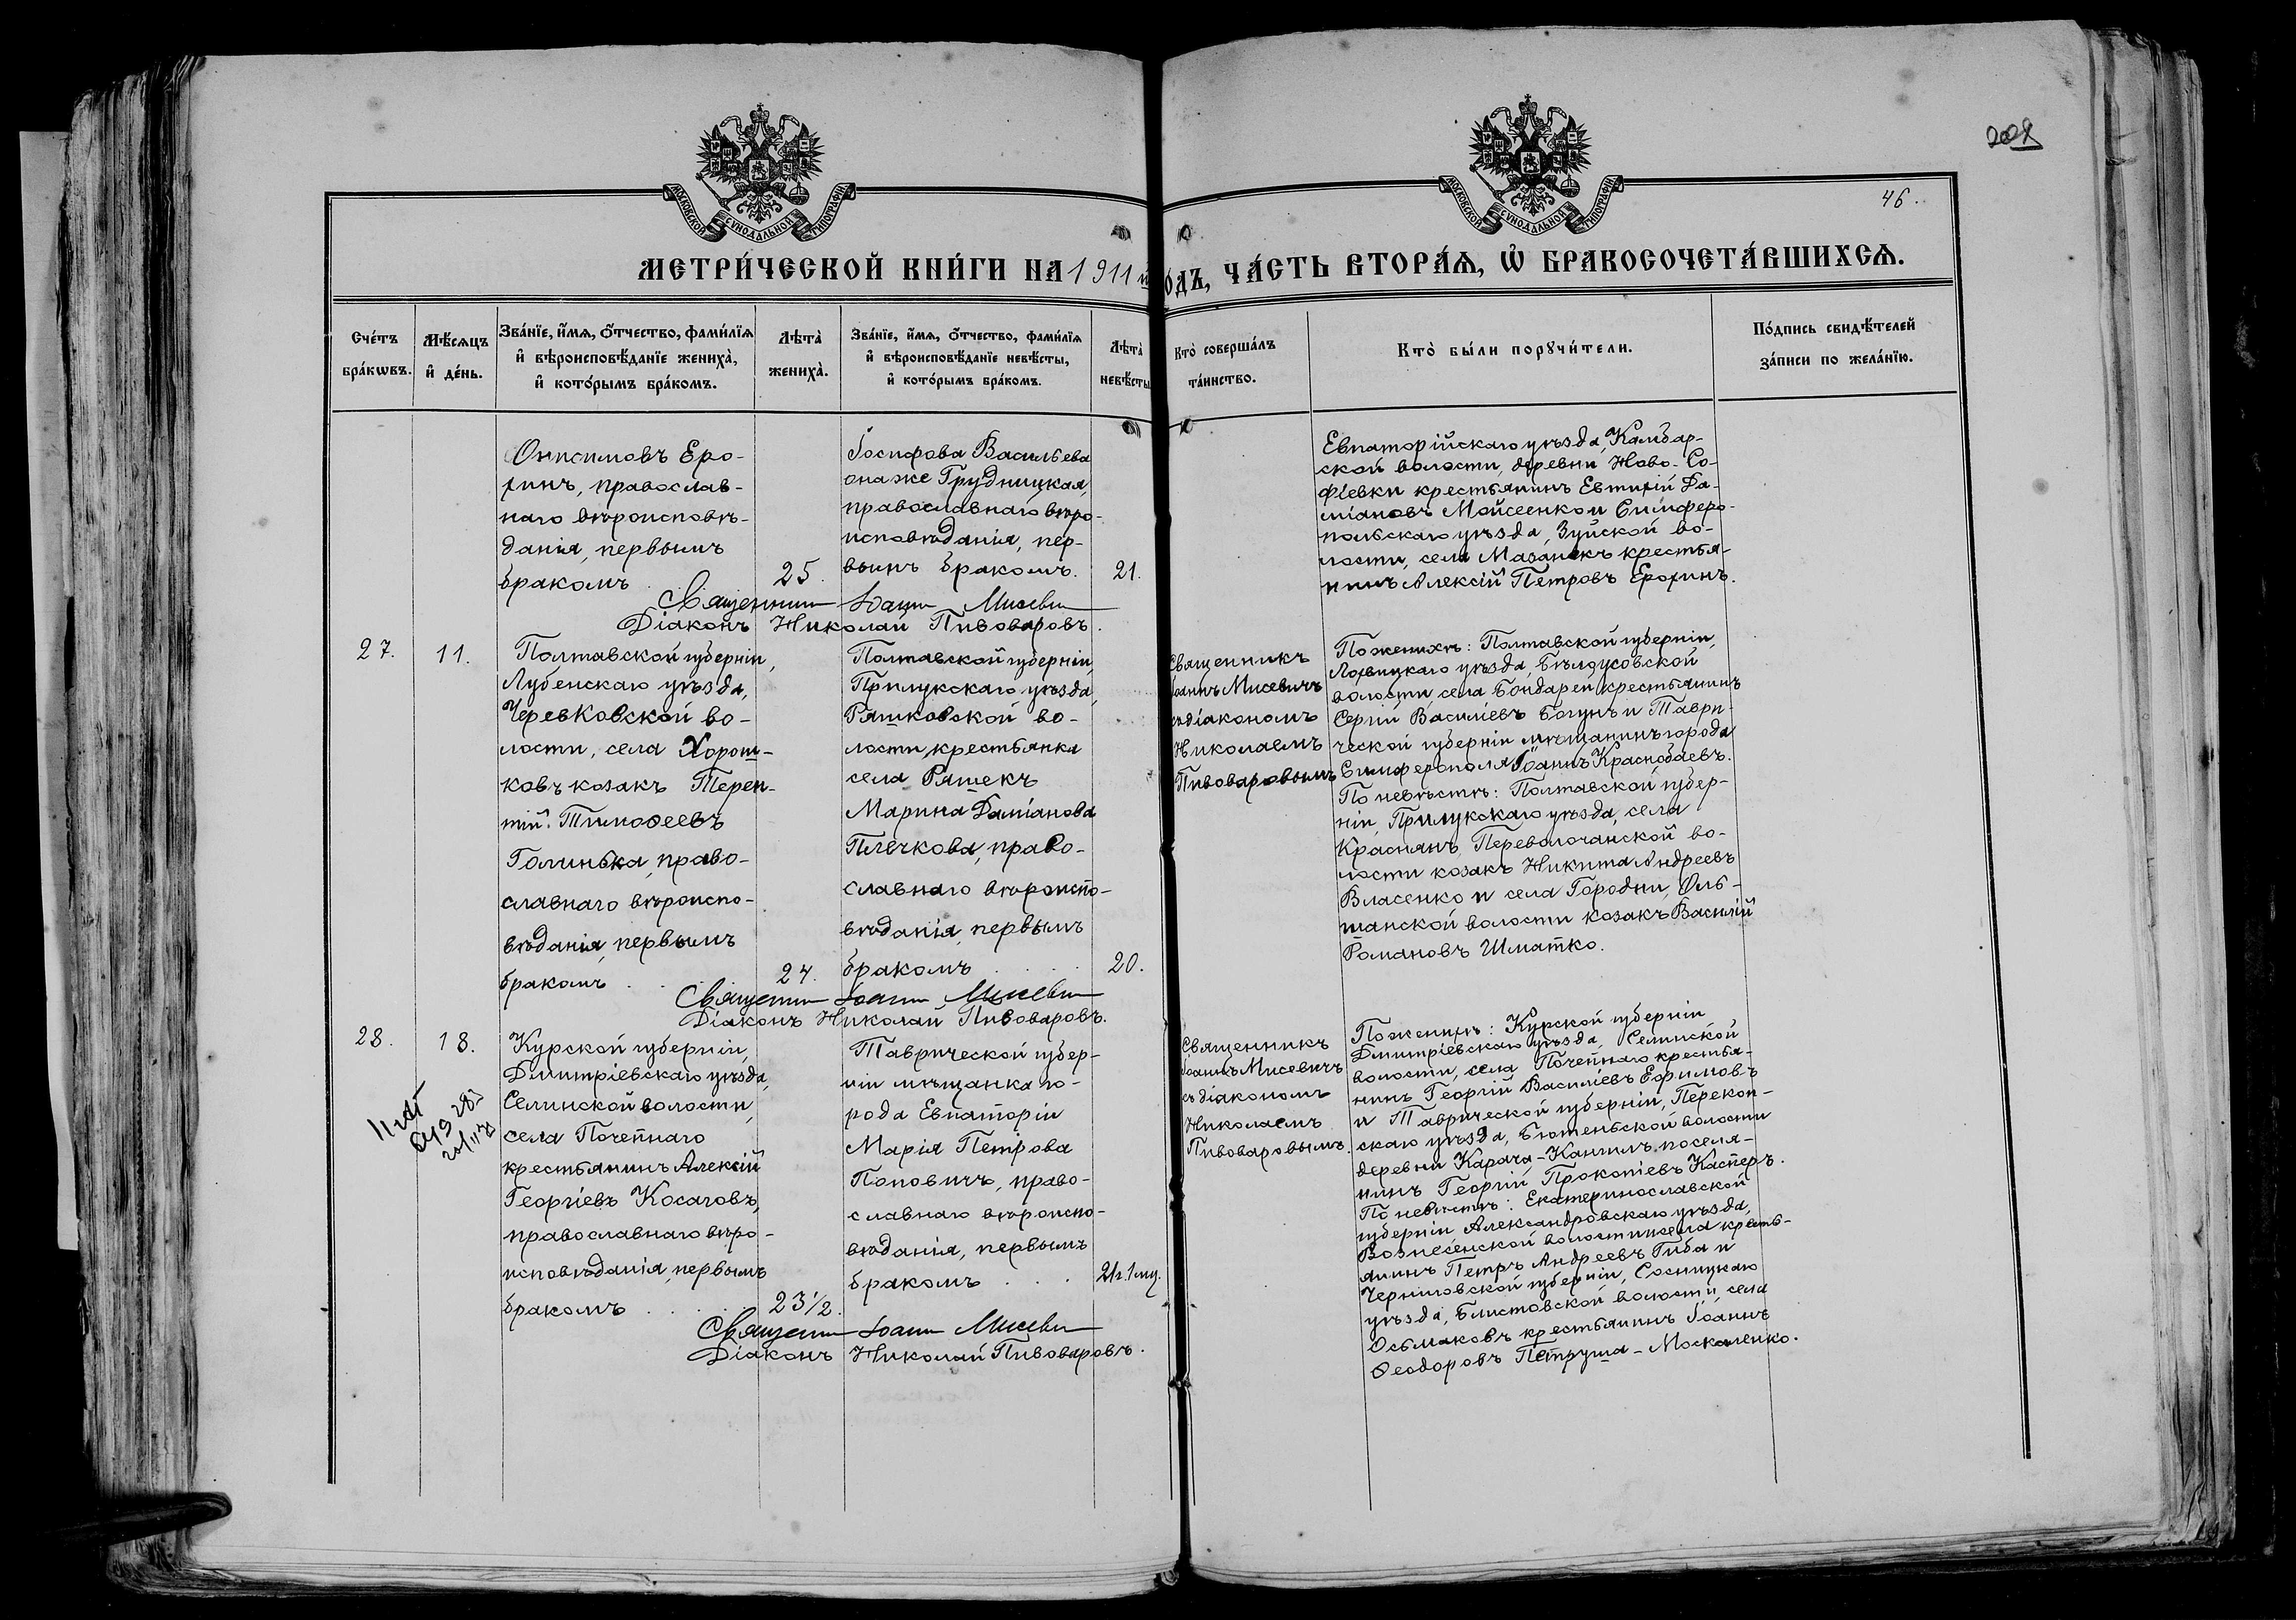 2028
46.
МОСКОВСКОЙ СѴНОДАЛЬНОЙ ТИПОГРАФІИ
МОСКОВСКОЙ СѴНОДАЛЬНОЙ ТИПОГРАФІИ
МЕТРИ́ЧЕСКОЙ КНИ́ГИ НА 1911 й
О́ДЪ, ЧА́СТЬ ВТОРА́Я, Ѡ҆ БРАКОСОЧЕТА́ВШИХСЯ.
Сче́тъ
бра́кѡвъ.
Мѣ́сяцъ
и҆ де́нь.
Зва́нїе, и҆́мя, ѻ҆́тчество, фами́лїя
и҆ вѣроисповѣ́данїе жениха̀,
и҆ кото́рымъ бра́комъ.
Лѣта̀
жениха̀.
Зва́нїе, и҆́мя, ѻ҆́тчество, фами́лїя
и҆ вѣроисповѣ́данїе невѣ́сты,
и҆ кото́рымъ бра́комъ.
Лѣта̀
невѣ́сты
Кто̀ соверша́лъ
та́инство.
Кто̀ бы́ли порꙋчи́тели.
По́дпись свидѣ́телей
за́писи по жела́нїю.
Онисимовъ Еро-
хинъ, православ-
наго вѣроисповѣ-
данія, первымъ
бракомъ
25.
Іосифова Васильева
она же Грудницкая,
православнаго вѣро-
исповѣданія, пер-
вымъ бракомъ.
21.
Евпаторійскаго уѣзда, Камбар-
ской волости, деревни Ново-Со-
фіевки крестьянинъ Евтихій Да-
міановъ Мойсеенко и Симферо-
польскаго уѣзда, Зуйской во-
лости, села Мазанокъ крестья-
нинъ Алексій Петровъ Ерохинъ.
Священникъ Іоаннъ Мисевичъ
Діаконъ Николай Пивоваровъ.
27.
11.
Полтавской губерніи,
Лубенскаго уѣзда,
Черевковской во-
лости, села Хорош-
ковъ козакъ Терен-
тій Тимоѳеевъ
Голинька, право-
славнаго вѣроиспо-
вѣданія, первымъ
бракомъ . .
24.
Полтавской губерніи,
Прилукскаго уѣзда,
Ряшковской во-
лости, крестьянка
села Ряшекъ
Марина Даміанова
Плечкова, право-
славнаго вѣроиспо-
вѣданія, первымъ
бракомъ . . .
20.
Священникъ
Іоаннъ Мисевичъ
съ діакономъ
Николаемъ
Пивоваровымъ
По женихѣ: Полтавской губерніи,
Лохвицкаго уѣзда, Бѣлоусовской
волости, села Бондарей крестьянинъ
Сергій Василіевъ Богунъ и Таври-
ческой губерніи мѣщанинъ города
Симферополя Іоаннъ Краснобаевъ.
По невѣстѣ: Полтавской губер-
ніи, Прилукскаго уѣзда, села
Краснянъ, Переволочанской во-
лости козакъ Никита Андреевъ
Власенко и села Городни, Оль-
шанской волости козакъ Василій
Романовъ Шматко.
Священникъ Іоаннъ Мисевичъ
Діаконъ Николай Пивоваровъ.
28.
18.
Курской губерніи,
Дмитріевскаго уѣзда,
Селинской волости,
села Почепнаго
крестьянинъ Алексій
Георгіевъ Косаговъ,
православнаго вѣро-
исповѣданія, первымъ
бракомъ . . . .
23 1/2.
Таврической губер-
ніи мѣщанка го-
рода Евпаторіи
Марія Петрова
Поповичъ, право-
славнаго вѣроиспо-
вѣданія, первымъ
бракомъ . . .
21 г. 1 мц.
Священникъ
Іоаннъ Мисевичъ
съ діакономъ
Николаемъ
Пивоваровымъ.
По женихѣ: Курской губерніи
Дмитріевскаго уѣзда, Селинской
волости, села Почепнаго крестья-
нинъ Георгій Василіевъ Ефимовъ
и Таврической губерніи, Перекоп-
скаго уѣзда, Бютеньской волости
деревни Карача-Кангилъ поселя-
нинъ Георгій Прокопіевъ Касперъ.
По невѣстѣ: Екатеринославской
губерніи Александровскаго уѣзда,
Вознесенской волости и села кресть-
янинъ Петръ Андреевъ Гиба и
Черниговской губерніи, Сосницкаго
уѣзда, Блистовской волости, села
Осьмаковъ крестьянинъ Іоаннъ
Ѳеодоровъ Петруша-Москаленко.
Священникъ Іоаннъ Мисевичъ
Діаконъ Николай Пивоваровъ.